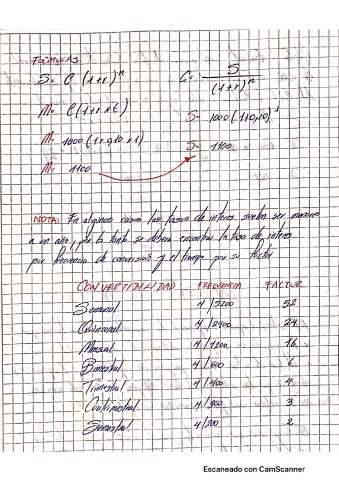 FORMULAS
S= C (1+r)ⁿ
C= S / (1+r)ⁿ
M= C(1+r×t)
S= 1000(1+0,10)¹
M= 1000(1+0,10×1)
S= 1100
M= 1100
NOTA: En algunos casos las tasas de interes suelen ser menores
a un año, por lo tanto se deben encontrar la tasa de interes
por frecuencia de conversión y el tiempo por su factor
CONVERTIBILIDAD FRECUENCIA FACTOR
Semanal 1/5200 52
Quincenal 1/2400 24
Mensual 1/1200 16
Bimestral 1/600 6
Trimestral 1/400 4
Cuatrimestral 1/300 3
Semestral 1/200 2
Escaneado con CamScanner